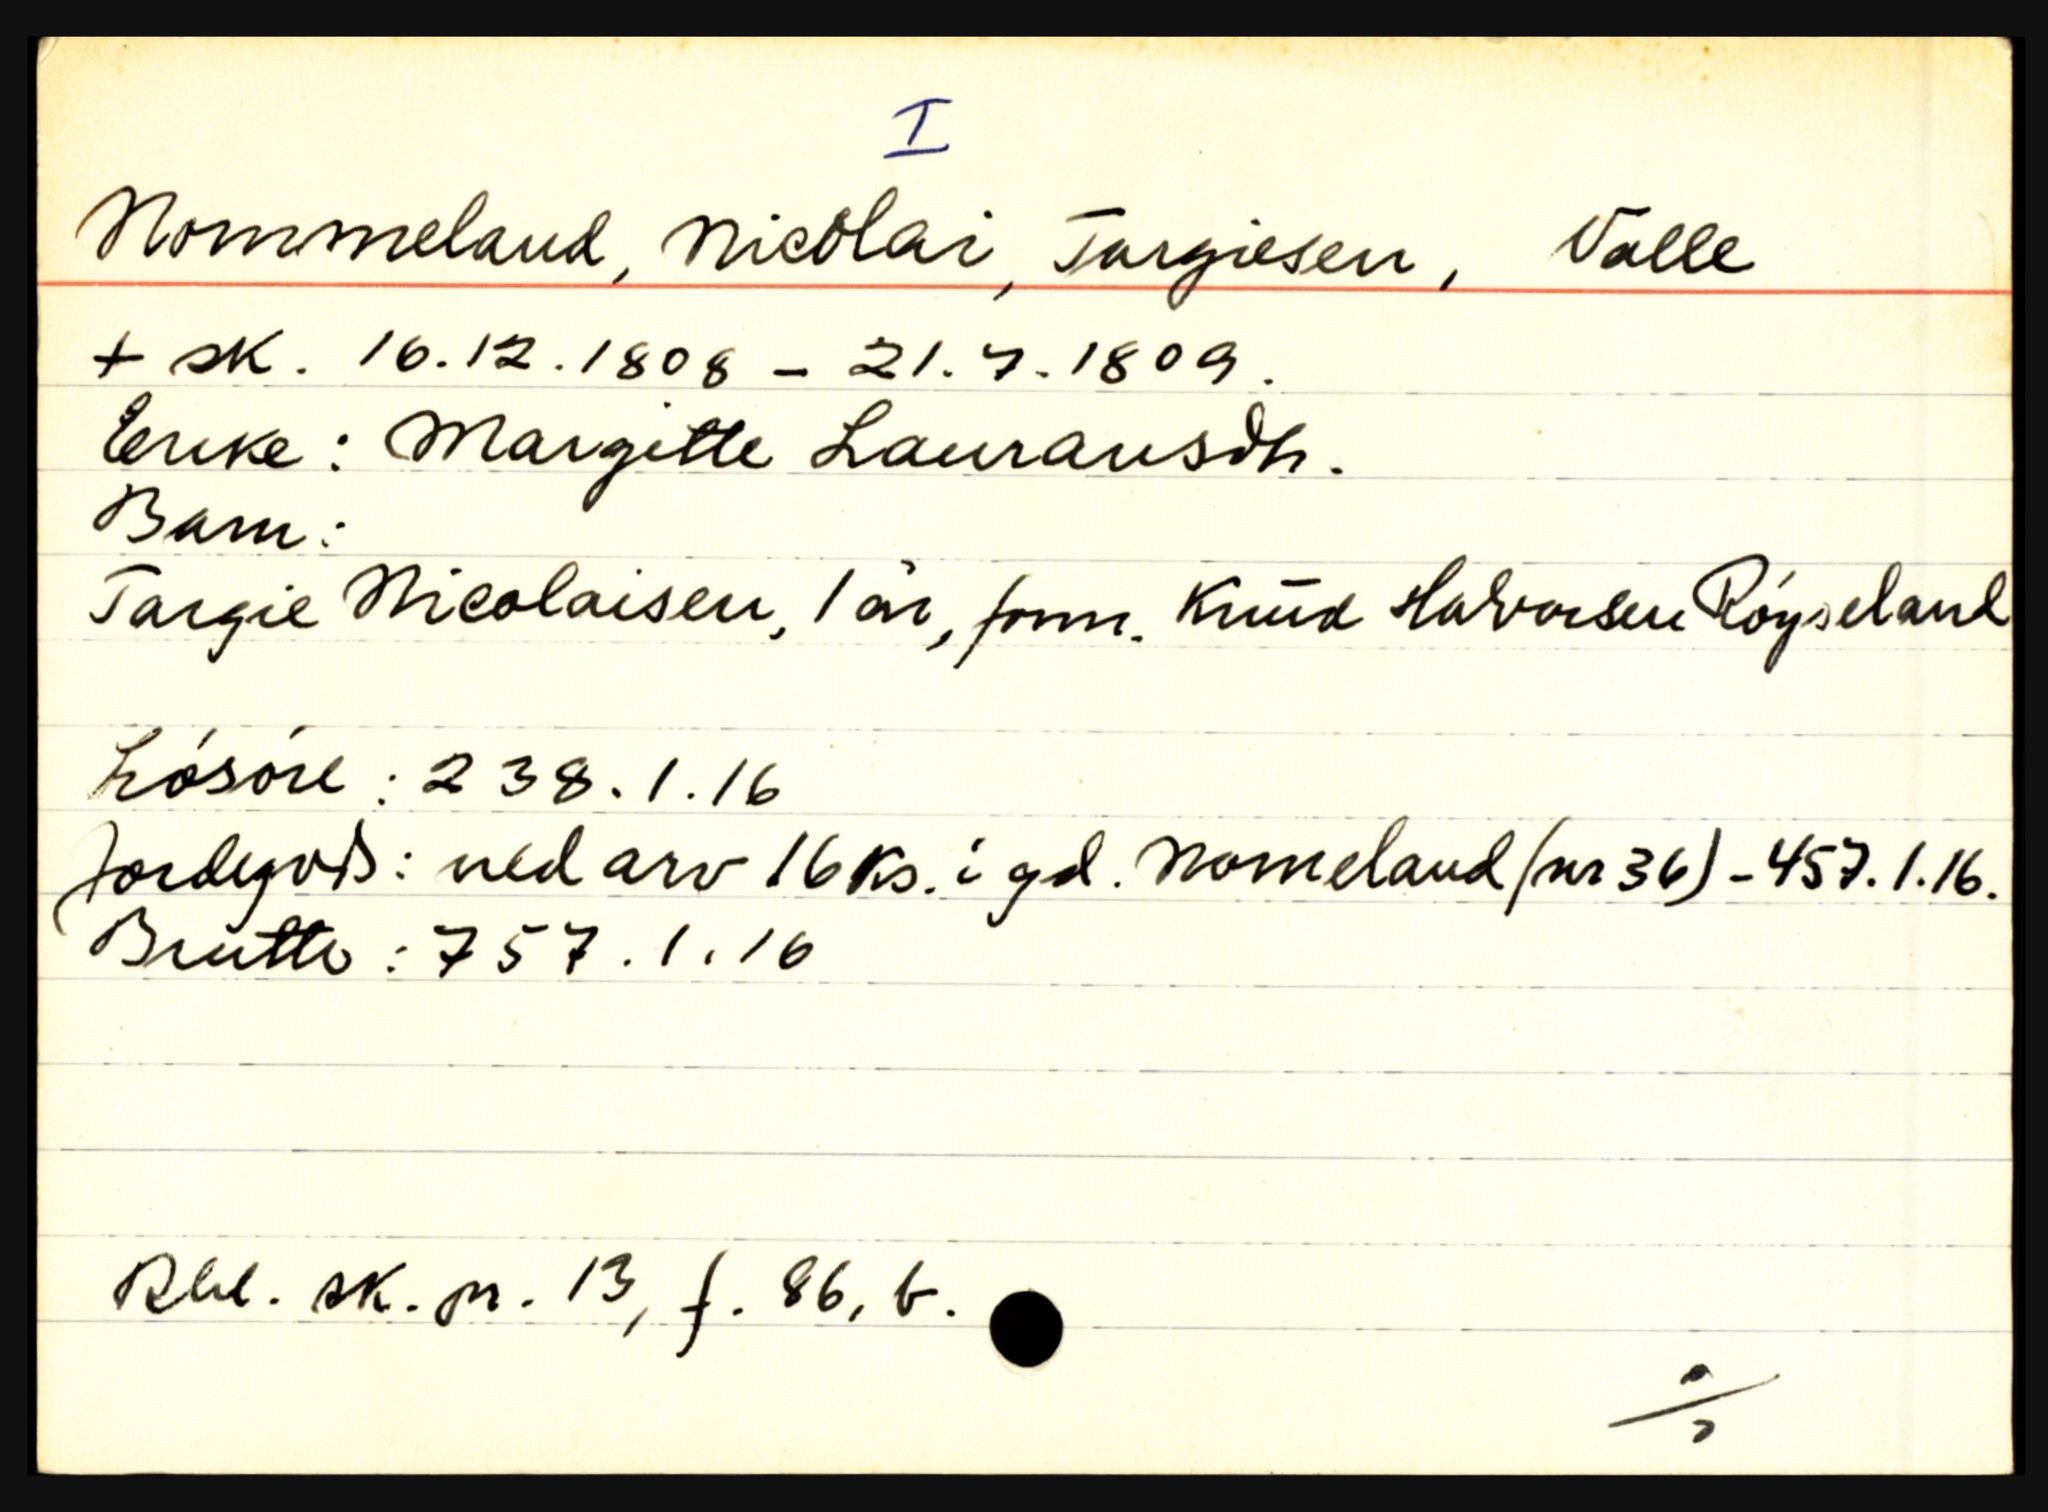 I
Nommeland, Nicolai, Targiesen, Valle
+ sk. 16.12.1808 - 21.7.1809.
Enke: Margitte Lauransdtr.
Barn:
Targie Nicolaisen, 1 år, form. Knud Halvorsen Röyseland
Lösöre: 238.1.16
Jordegods: ned arv 16 ks. i gd. Nomeland (nr 36) - 457.1.16.
Brutto: 757.1.16
Rbl. sk. pr. 13, f. 86, b.